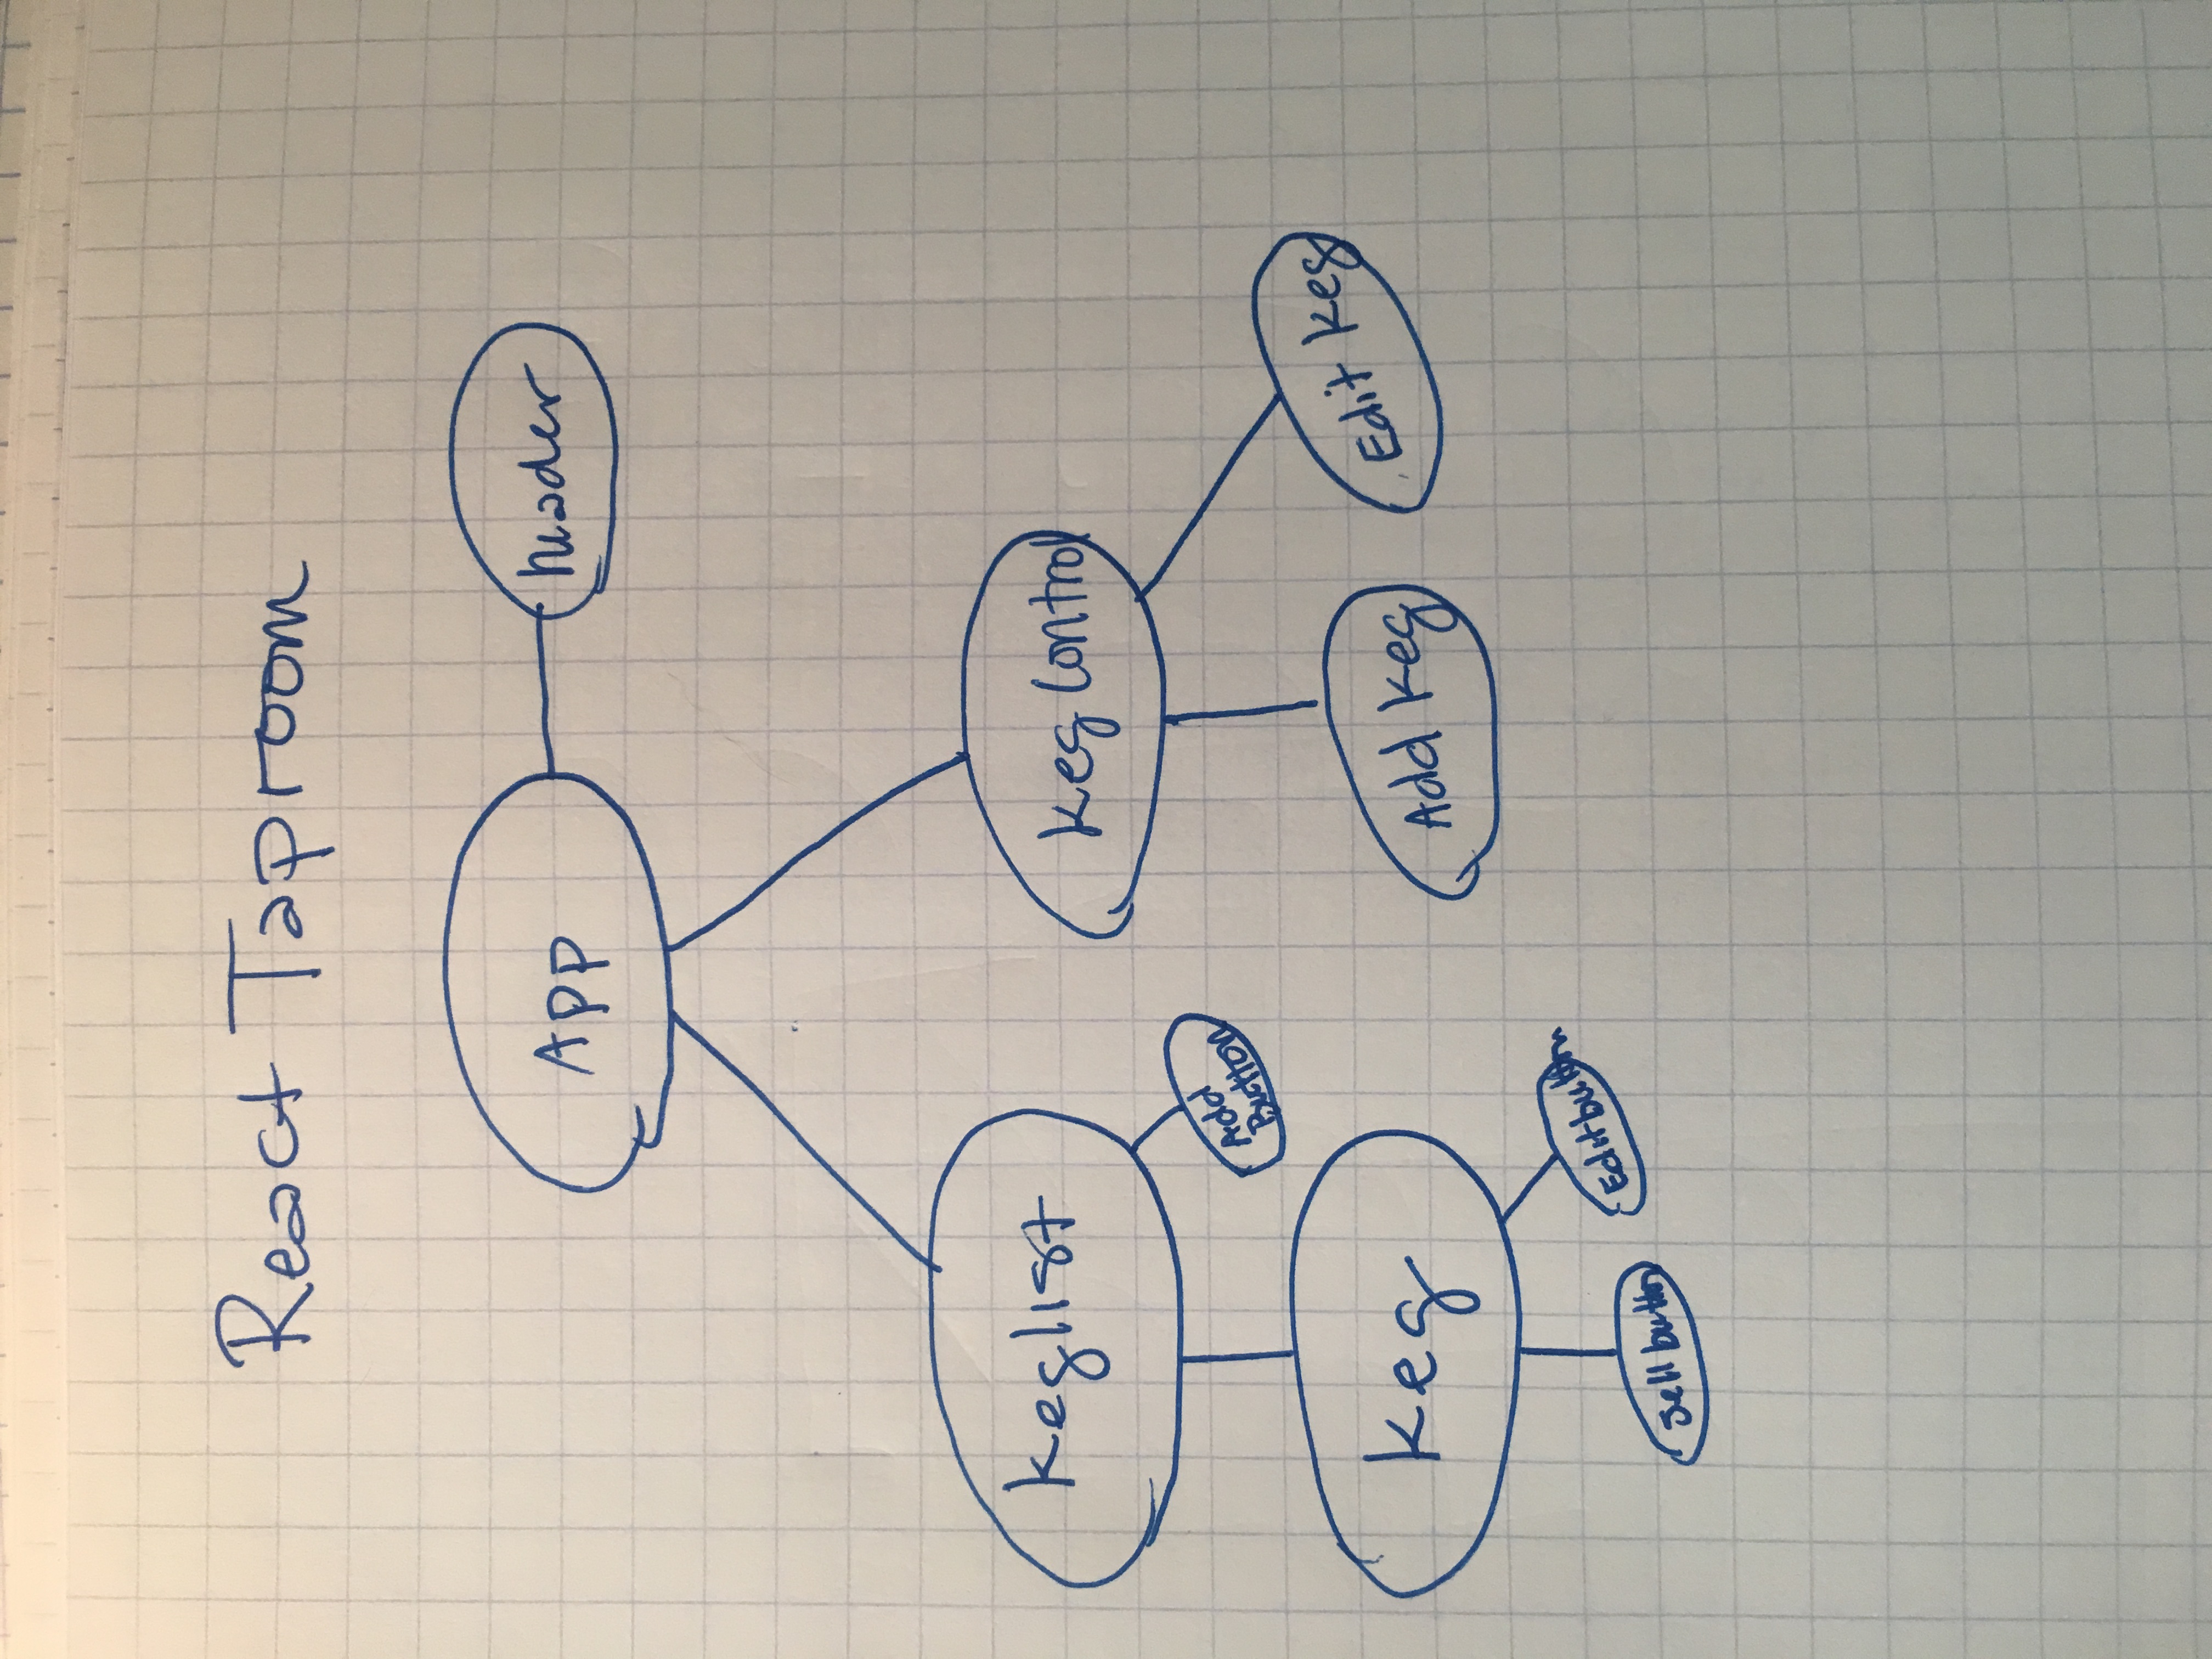 React Taproom
App
header
Keglist
Keg Control
Add
Button
Keg
Add Keg
Edit Keg
Editbutton
Sell button